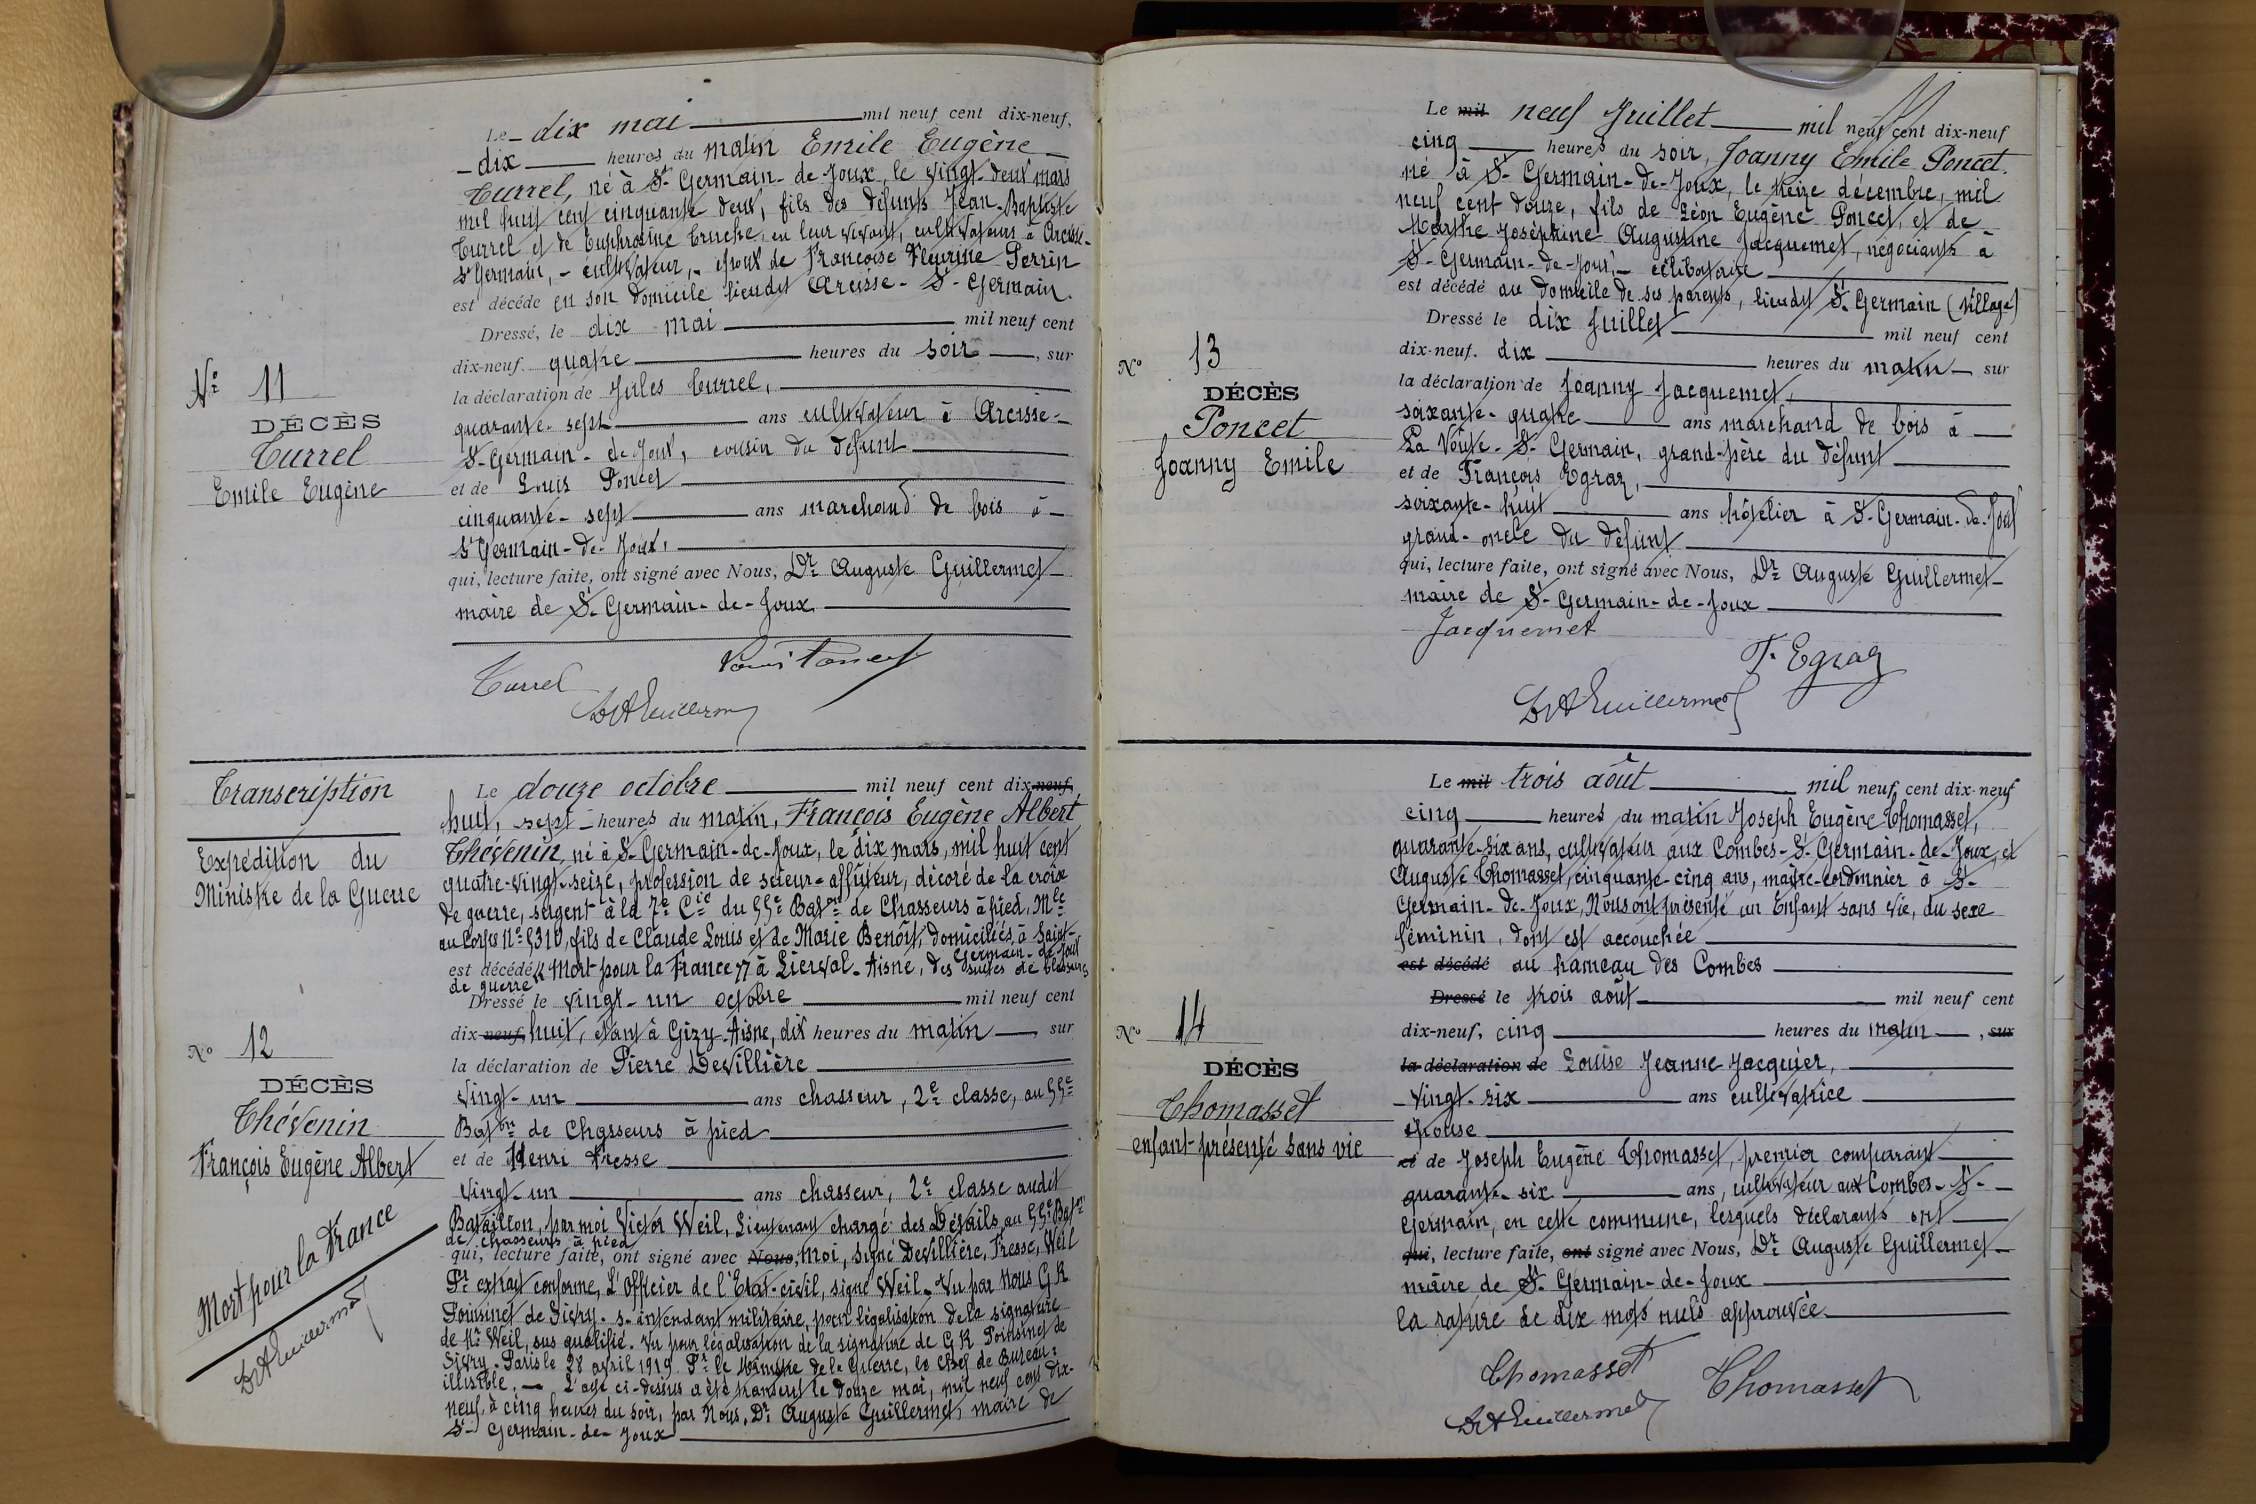 Le dix mai mil neuf cent dix-neuf,
dix heures du matin Emile Eugène
Turrel, né à St Germain-de-Joux, le vingt-deux mars
mil huit cent cinquante deux, fils des défunts Jean-Baptiste
Turrel et de Euphrosine Truche, en leur vivant, cultivateurs à Arcisse-
St Germain, - cultivateur, - époux de Françoise Fleurine Perrin
est décédé en son domicile lieudit Arcisse - St Germain.
Dressé, le dix mai mil neuf cent
dix-neuf quatre heures du soir, sur
la déclaration de Jules Turrel,
quarante-sept ans cultivateur à Arcisse-
St Germain-de-Joux, cousin du défunt
et de Louis Poncet
cinquante-sept ans marchand de bois à
St Germain-de-Joux,
qui, lecture faite, ont signé avec Nous, Dr Auguste Guillermet
maire de St Germain-de-Joux
Turrel Louis Poncet
Dr A Guillermet
No 11
DÉCÈS
Turrel
Emile Eugène
Transcription
Expédition du
Ministre de la Guerre
No 12
DÉCÈS
Thévenin
François Eugène Albert
Mort pour la France
Dr A Guillermet
Le douze octobre mil neuf cent dix-neuf,
huit, sept heures du matin, François Eugène Albert
Thévenin, né à St Germain-de-Joux, le dix mars, mil huit cent
quatre-vingt-seize, profession de scieur-affûteur, décoré de la croix
de guerre, sergent à la 7e Cie du 55e Baton de Chasseurs à pied, Mle
au Corps No 5310, fils de Claude Louis et de Marie Benoît, domiciliés à Saint-
Germain-de-Joux
est décédé "Mort pour la France" à Lierval-Aisne, des suites de blessures
de guerre
Dressé le vingt-un octobre mil neuf cent
dix-neuf, huit, étant à Gizy-Aisne, dix heures du matin, sur
la déclaration de Pierre Devillière
vingt-un ans chasseur, 2e classe, au 55e
Baton de Chasseurs à pied
et de Henri Fresse
vingt-un ans chasseur, 2e classe audit
Bataillon, par moi Victor Weil, Lieutenant chargé des Détails au 55e Baton
de chasseurs à pied
qui, lecture faite, ont signé avec Nous, moi, signé Devillière, Fresse, Weil
Pr extrait conforme, L'Officier de l'Etat-civil, signé Weil. Vu par Nous G R
Poinsinet de Sivry. s. intendant militaire, pour légalisation de la signature
de Mr Weil, sus qualifié. Vu pour légalisation de la signature de G R Poinsinet de
Sivry. Paris le 28 avril 1919. Pr le Ministre de la Guerre, le Chef de Bureau:
illisible. — L'acte ci-dessus a été transcrit le douze mai, mil neuf cent dix-
neuf, à cinq heures du soir, par Nous, Dr Auguste Guillermet, maire de
St Germain-de-Joux
Le mil neuf Juillet mil neuf cent dix-neuf
cinq heures du soir, Joanny Emile Poncet
né à St Germain-de-Joux, le treize décembre, mil
neuf cent douze, fils de Léon Eugène Poncet, et de
Marthe Joséphine Augustine Jacquemet, négociants à
St Germain-de-Joux, - célibataire
est décédé au domicile de ses parents, lieudit St Germain (village)
Dressé le dix Juillet mil neuf cent
dix-neuf. dix heures du matin sur
la déclaration de Joanny Jacquemet,
soixante-quatre ans marchand de bois à
La Voûte-St Germain, grand-père du défunt
et de François Egraz,
soixante-huit ans hôtelier à St Germain-de-Joux
grand-oncle du défunt
qui, lecture faite, ont signé avec Nous, Dr Auguste Guillermet
maire de St Germain-de-Joux
Jacquemet
F. Egraz
Dr A Guillermet
No 13
DÉCÈS
Poncet
Joanny Emile
Le mil trois août mil neuf cent dix-neuf
cinq heures du matin Joseph Eugène Thomasset,
quarante-six ans, cultivateur aux Combes-St Germain-de-Joux, et
Auguste Thomasset, cinquante-cinq ans, maître-cordonnier à St
Germain-de-Joux, Nous ont présenté un Enfant sans vie, du sexe
féminin, dont est accouchée
est décédé au hameau des Combes
Dressé le trois août mil neuf cent
dix-neuf, cinq heures du matin, sur
la déclaration de Louise Jeanne Jacquier,
vingt-six ans cultivatrice
épouse
et de Joseph Eugène Thomasset, premier comparant
quarante-six ans, cultivateur aux Combes-St
Germain, en cette commune, lesquels déclarants ont
qui, lecture faite, ont signé avec Nous, Dr Auguste Guillermet
maire de St Germain-de-Joux
la rature de dix mots nuls approuvée
Thomasset Thomasset
Dr A Guillermet
No 14
DÉCÈS
Thomasset
enfant présenté sans vie